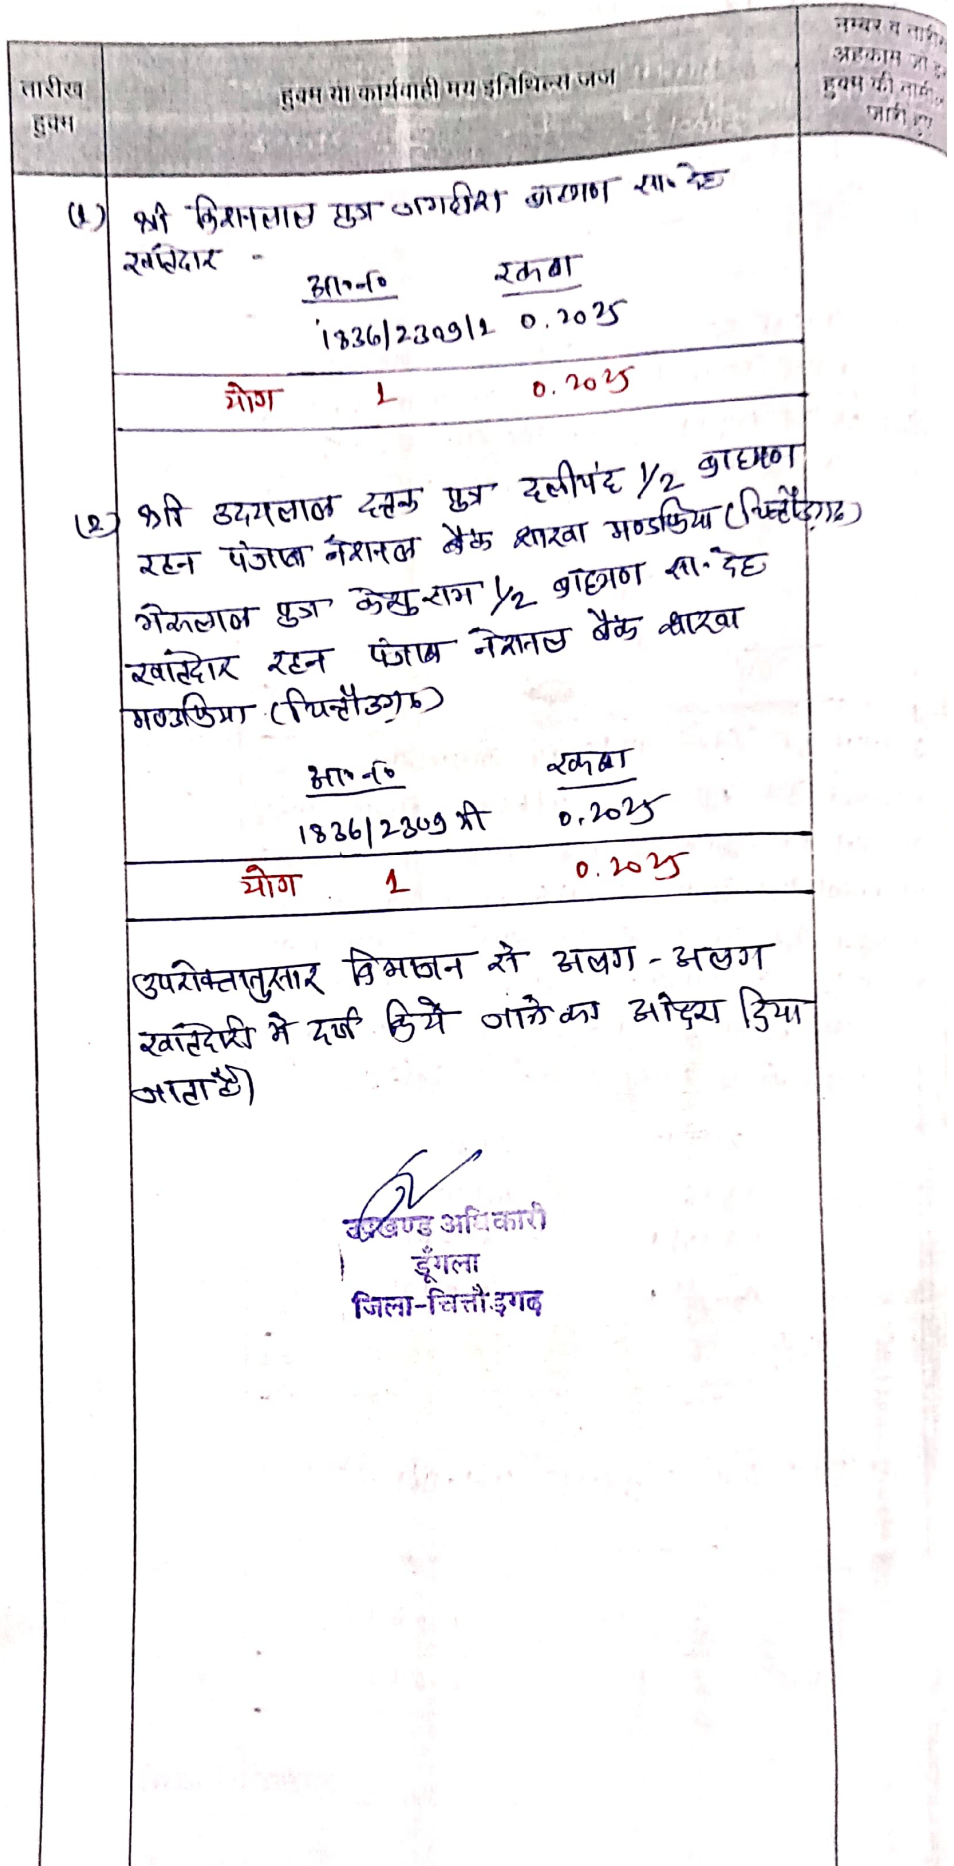 तारीख
हुक्म
हुक्म या कार्यवाही मय इनिशिल्स जज
नम्बर व तारीख
अहकाम जो इस
हुक्म की तामील
जारी हुए
(1) श्री किशनलाल पुत्र जगदीश ब्राह्मण सा. देह
खातेदार -
आ॰ नं॰ रकबा
1836/2309/1 0.2025
योग 1 0.2025
(2) श्री उदयलाल दत्तक पुत्र दलीचंद 1/2 ब्राह्मण
रहन पंजाब नेशनल बैंक शाखा मण्डफिया (चित्तौड़गढ़)
भेरूलाल पुत्र केशुराम 1/2 ब्राह्मण सा. देह
खातेदार रहन पंजाब नेशनल बैंक शाखा
मण्डफिया (चित्तौडगढ़)
आ॰ नं॰ रकबा
1836/2309 मी 0.2025
योग 1 0.2025
उपरोक्तानुसार विभाजन से अलग - अलग
खातेदारी मे दर्ज किये जाने का आदेश दिया
जाता है)
उपखण्ड अधिकारी
डूँगला
जिला-चित्तौड़गढ़